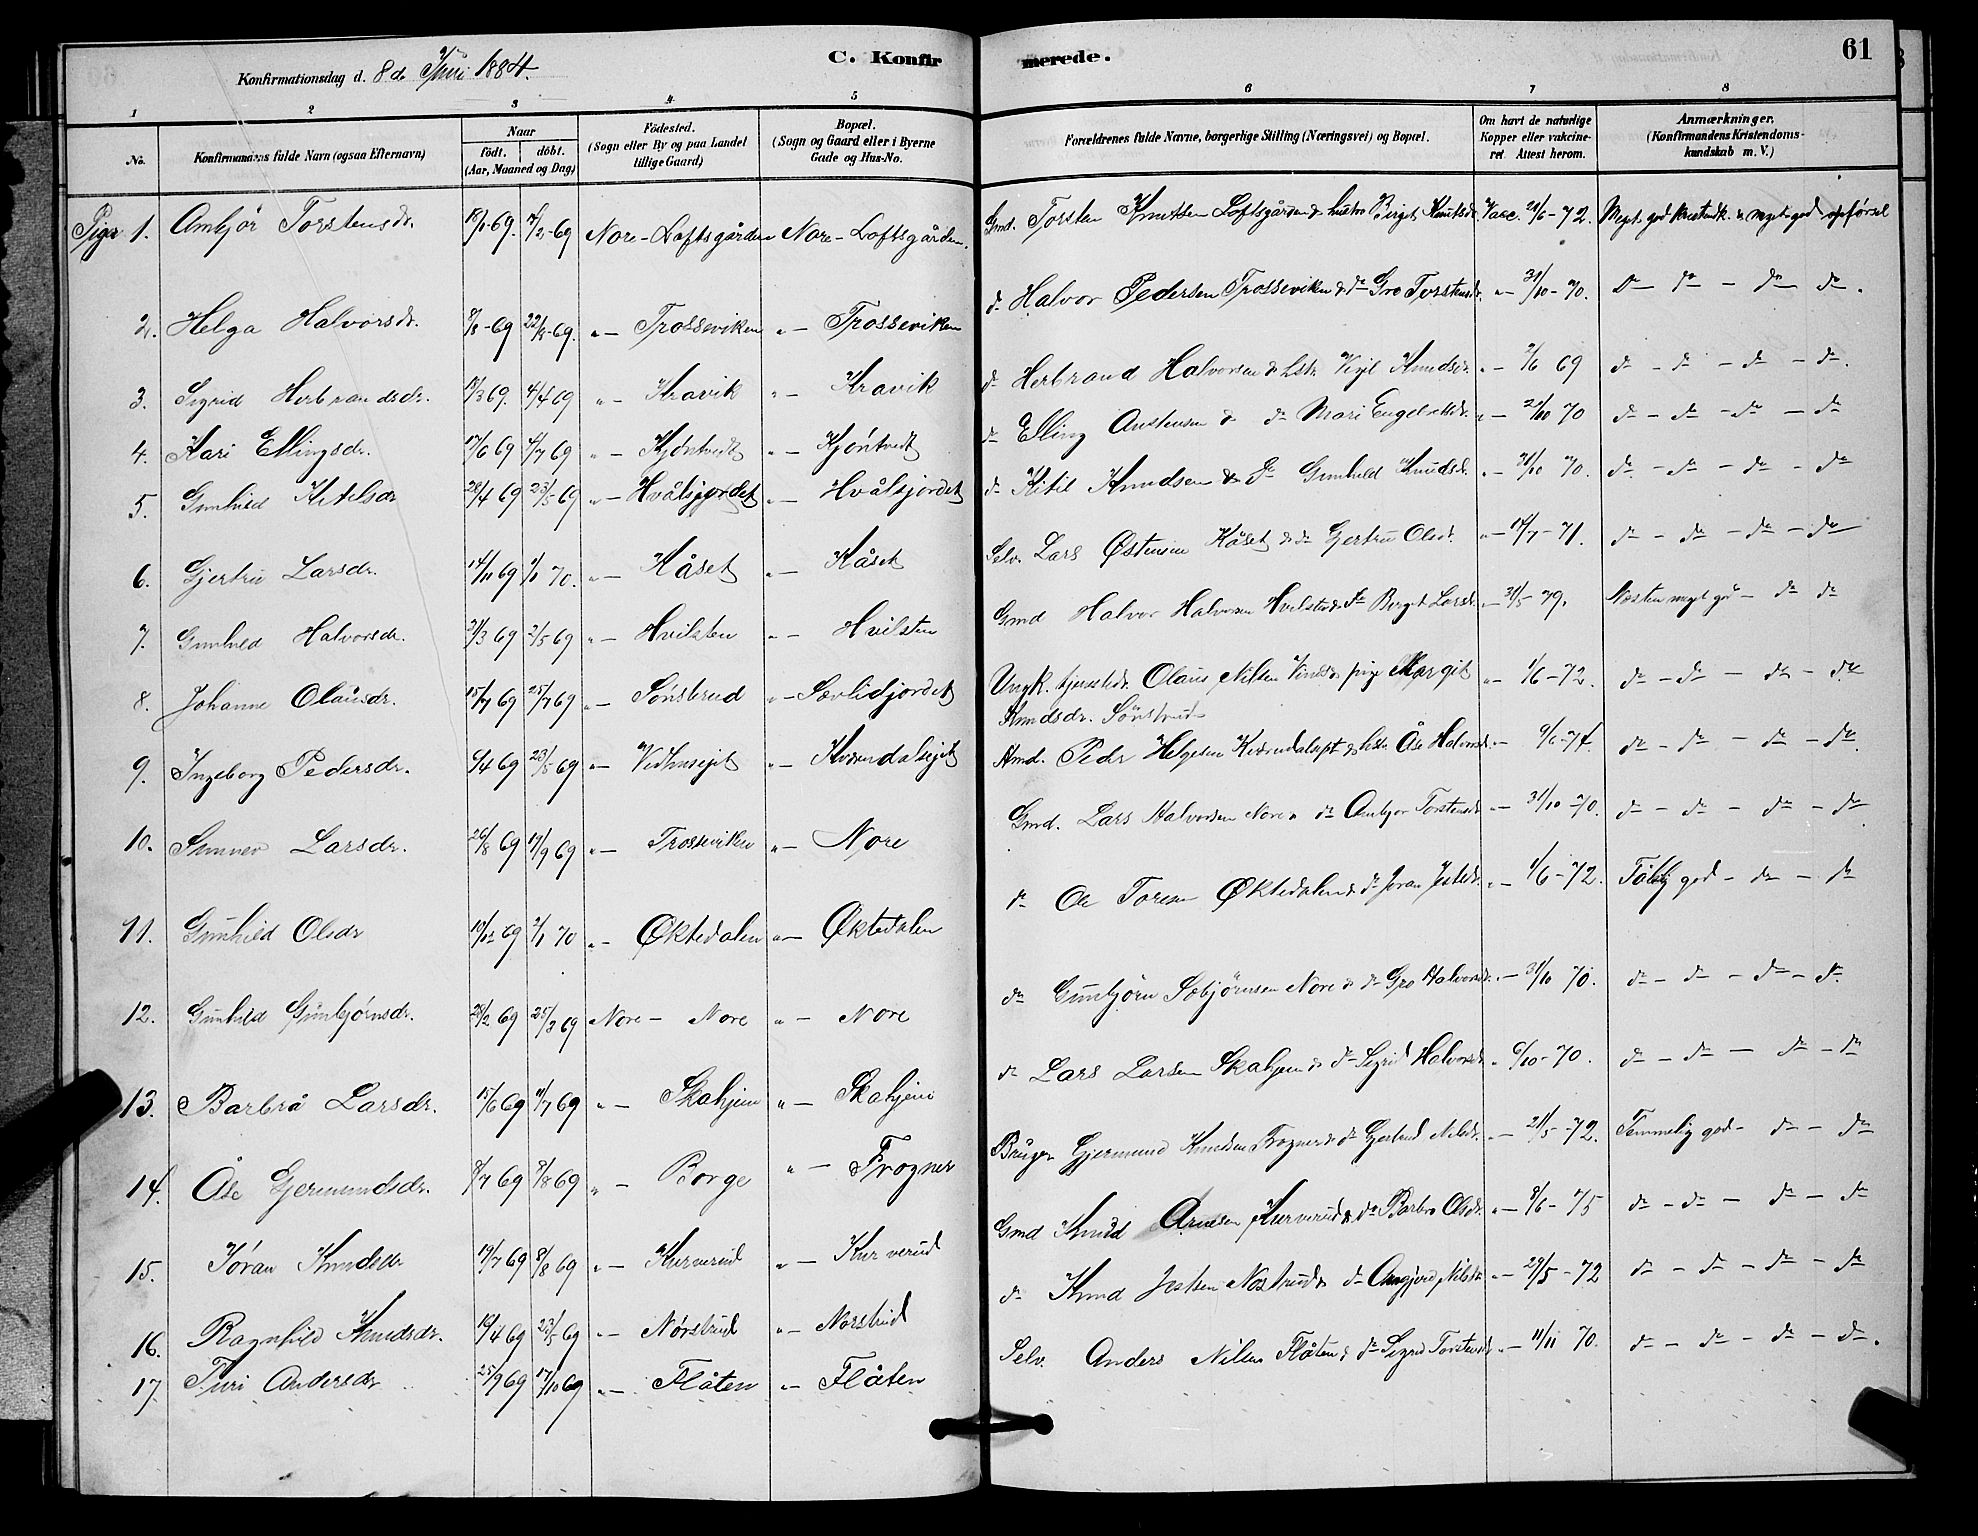 Konfirmationsdag d. 8de Juni 1884.
C. Konfirmerede.
61
1 2 3 4 5 6 7 8
No.
Konfirmandens fulde Navn (ogsaa Efternavn)
Naar
født. døbt.
(Aar, Maaned og Dag)
Fødested.
(Sogn eller By og paa Landet
tillige Gaard)
Bopæl.
(Sogn og Gaard eller i Byerne
Gade og Hus-No.
Forældrenes fulde Navne, borgerlige Stilling (Næringsvei) og Bopæl.
Om havt de naturlige
Kopper eller vakcineret
Attest herom.
Anmærkninger.
(Konfirmandens Kristendomskundskab
m. V.)
Piger 1. Ambjör Torstensdr. 18/1-69. 7/2-69 Nore - Loftsgården Nore - Loftsgården. Gmd. Torsten Knutsen Loftsgården & hustro Birgit Knutsdr. Vacc. 21/6-72. Meget god Kristendk. & meget god opførsel
2. Helga Halvorsdr. 9/8-69 22/8-69. " - Trosseviken " - Trosseviken do Halvor Pedersen Trosseviken & do Gro Torstensdr. " - 31/10-70. do - do - do - do.
3. Sigrid Herbrandsdr. 17/3 69. 4/4 69 " - Kravik " - Kravik do Herbrand Halvorsen & hstr. Knudsdr. " - 2/6 69 do - do - do - do.
4. Kari Ellingsdr. 17/6 69 4/7 69 " - Kjöntvedt " - Kjöntvedt do Elling Austensen & do Mari Engebretsdr. " - 21/10 70 do - do - do - do
5. Gunhild Kitelsdr 28/4 69 23/5 69 " - Hvålsjordet " - Hvålsjordet do Kitil Knudsen & do Gunhild Knudsdr. " - 31/10 70. do - do - do - do
6. Gjertru Larsdr. 14/11 69 1/1 70. " - Kåset " - Kåset Selv. Lars Østensen Kåset & do Gjertru Olsdr. " - 14/7-71. do - do - do - do
7. Gunhild Halvorsdr. 31/3 69 2/5 69 " - Hvilsten " - Hvilsten Gmd Halvor Halvorsen Hvilsten & do Berget Larsdr. - 31/5-79. Næsten meget god - do do
8. Johanne Olausdr. 15/7 69 25/7 69 " - Sönsterud " - Sævlidjordet Ungk. Olaus Nilsen & pige Margit " - 1/6-72. do - do - do - do
Knudsdr. Sönstrud
9. Ingeborg Pedersdr. 6/4 69 23/5 69 " - Vedhuseiet " - Kværndalseiet Hmd. Peder Helgesen & hstr. Åse Halvorsdr. - 9/6-74 do - do - do - do.
10. Sunnev Larsdr. 26/8 69 19/9 69 " - Trosseviken " - Nore Gmd. Lars Halvorsen Nore & do Ambjør Torstensdr. - 31/10-70. do - do - do - do
11. Gunhild Olsdr 10/12 69 2/1 70 " - Øktedalen " - Øktedalen do Ole Toresen Øktedalen & do Joran Jostsdr. " - 1/6-72. Tålelig god - do - do
12. Gunhild Gunbjørnsdr. 28/2 69 25/3 69 Nore - Nore " - Nore do Gunbjörn Sæbjörnsen Nore & do Gro Halvorsdr. " - 31/10 70. do - do - do - do
13. Barbrå Larsdr. 15/6 69 11/7 69 " - Skahjem " - Skahjem do Lars Larsen Skahjem & do Sigrid Halvorsdr. " 6/10-70. do - do - do - do
14. Åse Gjermundsdr. 8/7 69 8/8 69 " - Borge " - Frogner Bruger Gjermund Knudsen Frogner & do Gjertrud Nilsdr. - 21/5-72. Temmelig god - do - do
15. Jöran Knudsdr 19/7 69 8/8 69 " - Kurverud " - Kurverud Gmd Knud Arnesen Kurverud & do Barbro Olsdr. " - 8/6-75 do - do - do - do
16. Ragnhild Knudsdr. 19/4 69 23/5 69 " - Nørstrud " - Norstrud do Knud Jostsen Norstrud & do Nilsdr " - 29/5-72 do - do - do - do
17. Turi Andersdr 25/9 69 17/10 69 " - Flåten " - Flåten Selv. Anders Nilsen Flåten & do Sigrid Torstensdr. " - 11/11 70. do - do - do - do.